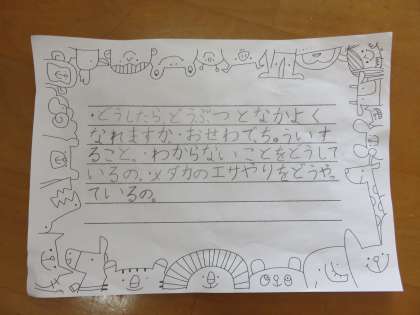 ・どうしたら、どうぶつとなかよく
なれますか・おせわで、ちゅういす
ること、・わからないことをどうして
いるの、・メダカのエサやりをどうやっ
ているの。